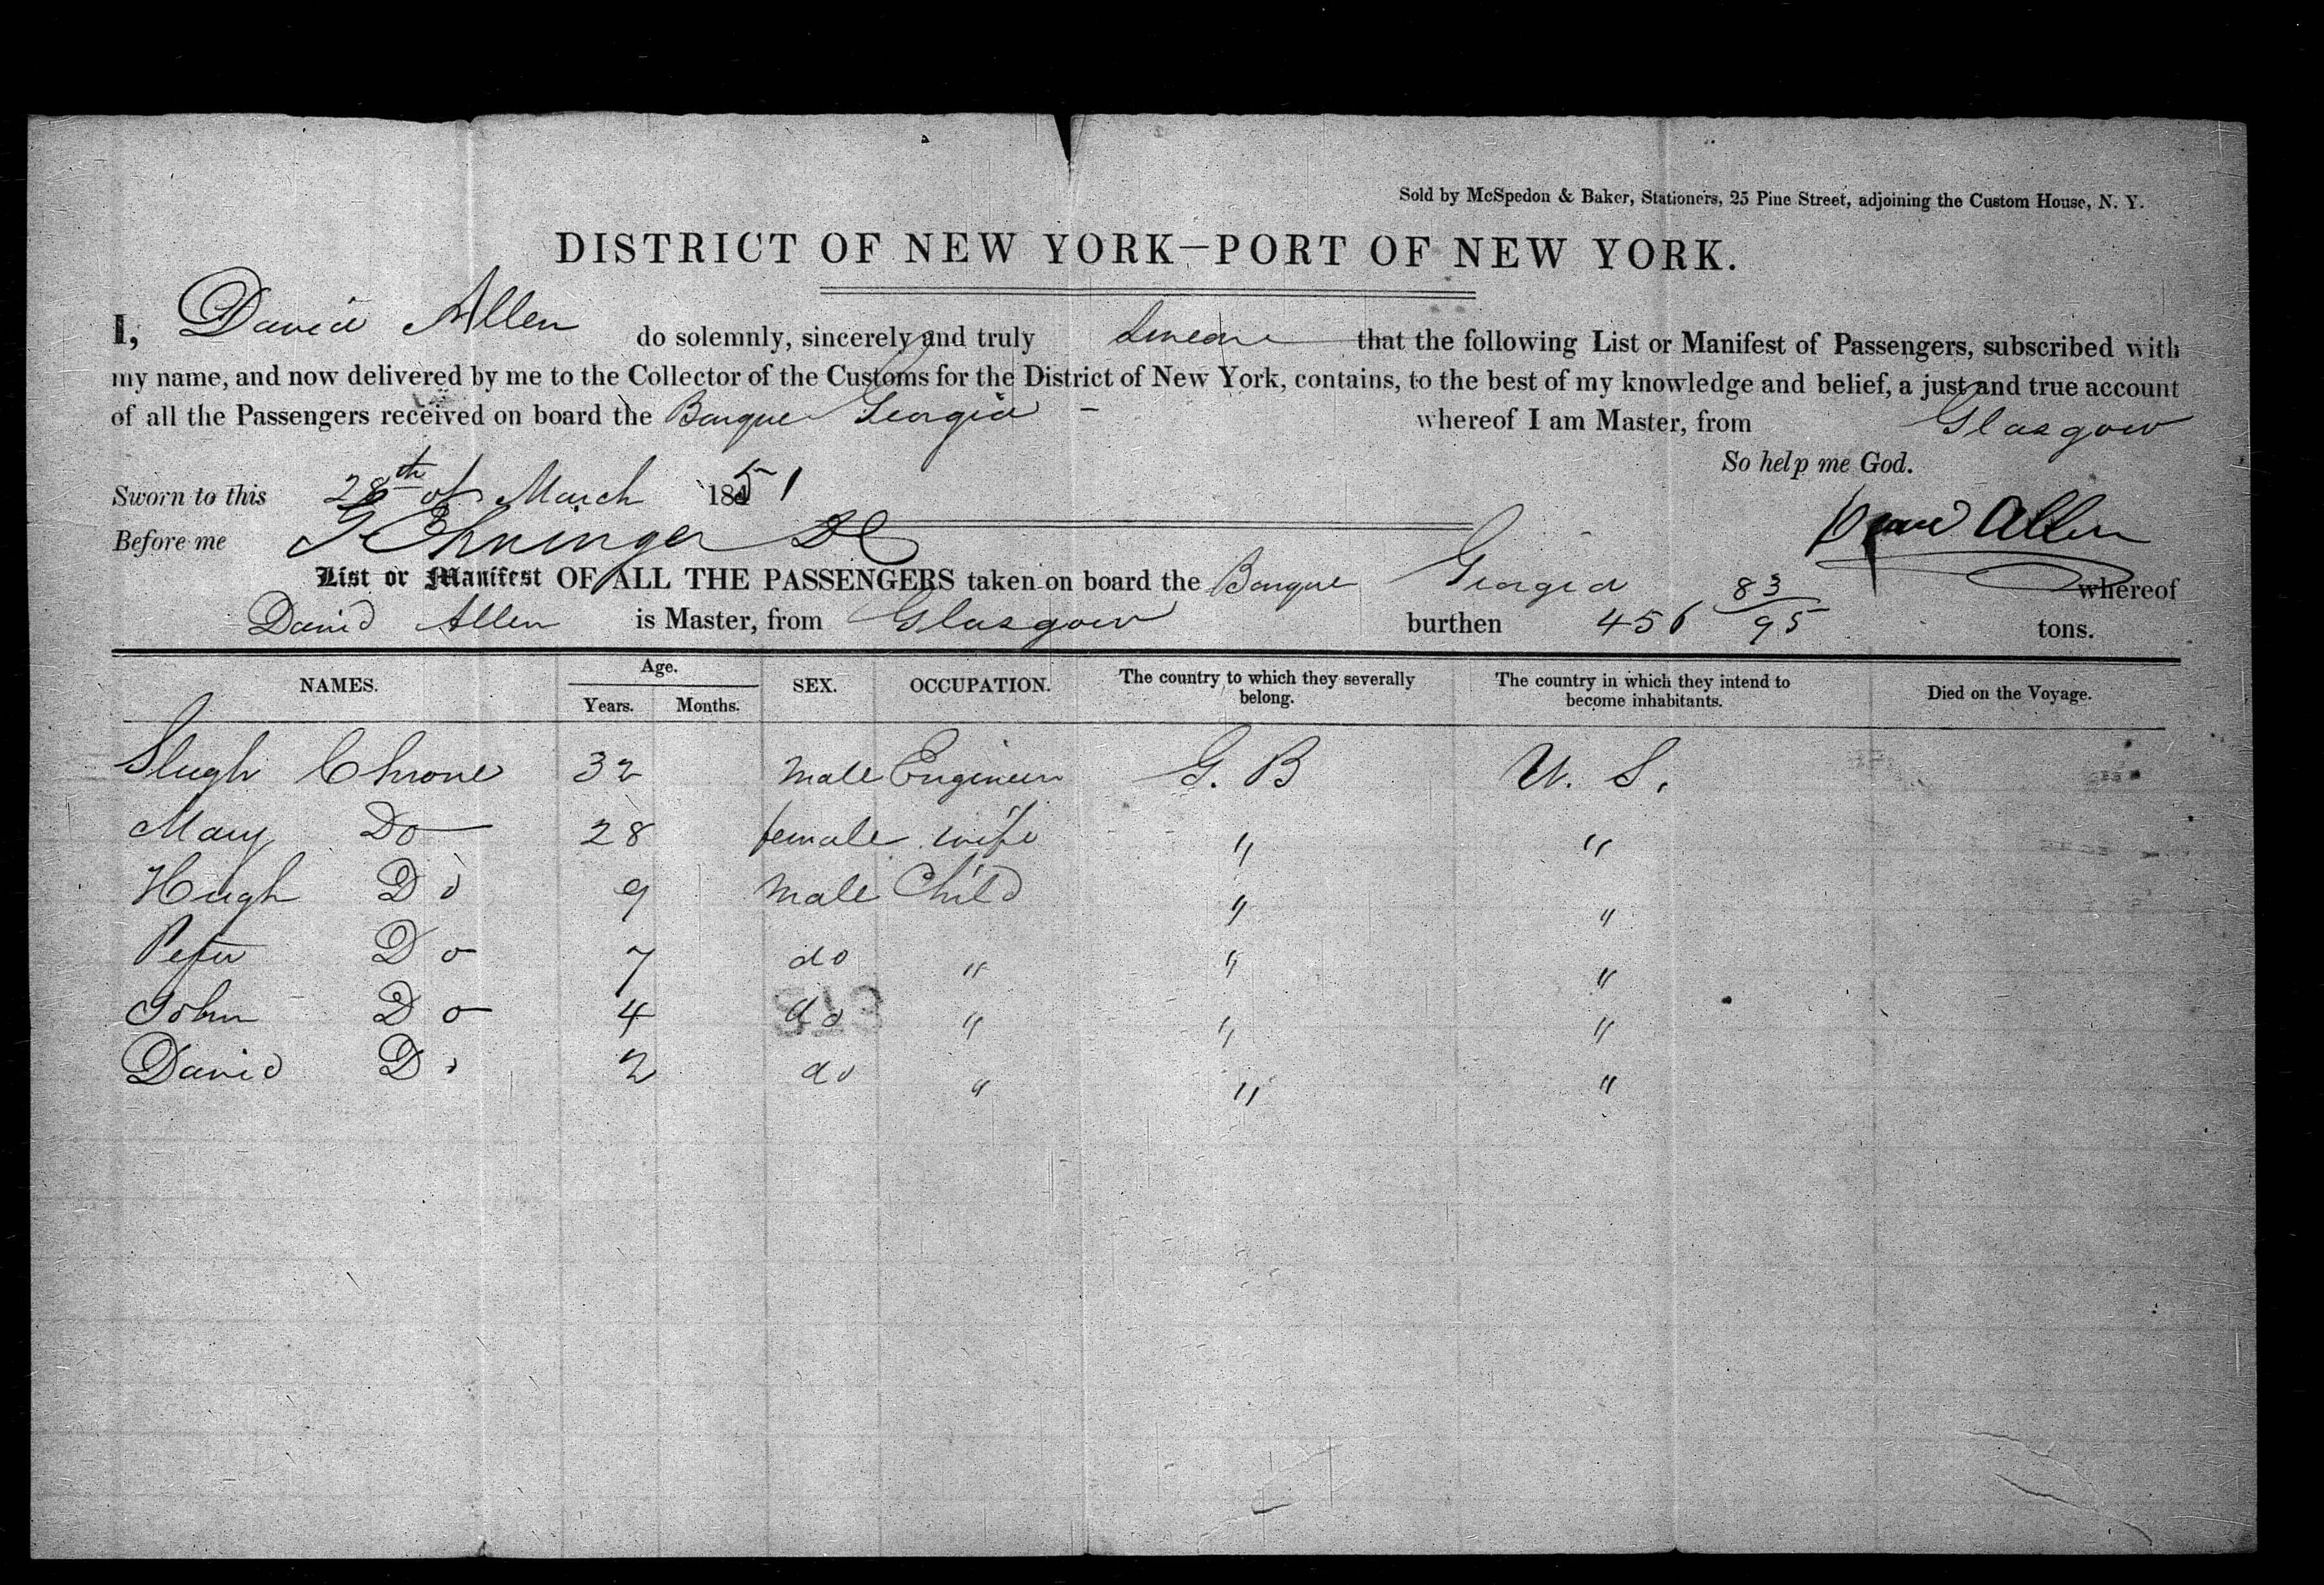 Sold by McSpedon & Baker, Stationers, 25 Pine Street, adjoining the Custom House, N. Y.
DISTRICT OF NEW YORK—PORT OF NEW YORK.
I, David Allen do solemnly, sincerely and truly swear that the following List or Manifest of Passengers, subscribed with
my name, and now delivered by me to the Collector of the Customs for the District of New York, contains, to the best of my knowledge and belief, a just and true account
of all the Passengers received on board the Barque Georgia - whereof I am Master, from Glasgow
So help me God.
Sworn to this 28th of March 1851
David Allen
Before me Ehninger DC
List or Manifest OF ALL THE PASSENGERS taken on board the Barque Georgia whereof
David Allen is Master, from Glasgow burthen 456 83/95 tons.
NAMES. Age. Years. Months. SEX. OCCUPATION. The country to which they severally belong. The country in which they intend to become inhabitants. Died on the Voyage.
Hugh 32 Male Engineer G. B U. S.
Mary Do 28 female wife " "
Hugh Do 9 Male Child " "
Peter Do 7 do " " "
John Do 4 do " " "
David Do 2 do " " "